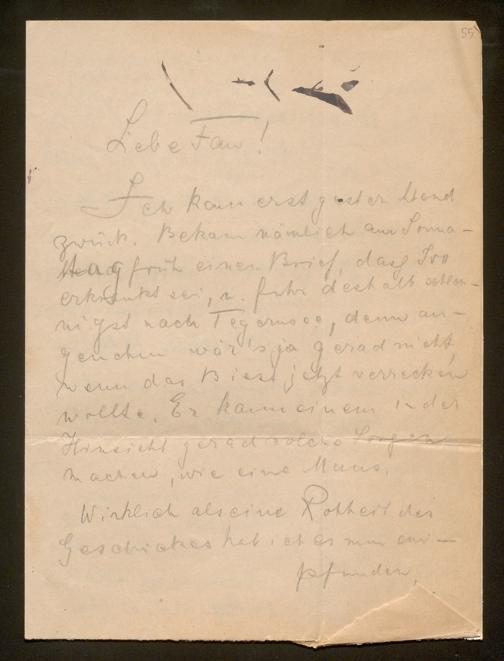 55
Liebe Fau!
Ich kam erst gestern Abend
zurück. Bekam nämlich am Sonna-
tag früh einen Brief, dass Ivo
erkrankt sei, u. fuhr deshalb schleu-
nigst nach Tegernsee, denn an-
genehm wär's ja gerad nicht,
wenn das Biest jetzt verrecken
wollte. Er kann einem in der
Hinsicht gerad solche Sorgen
machen, wie eine Maus.
Wirklich als eine Rohheit des
Geschickes hab ich es nun em-
pfunden,